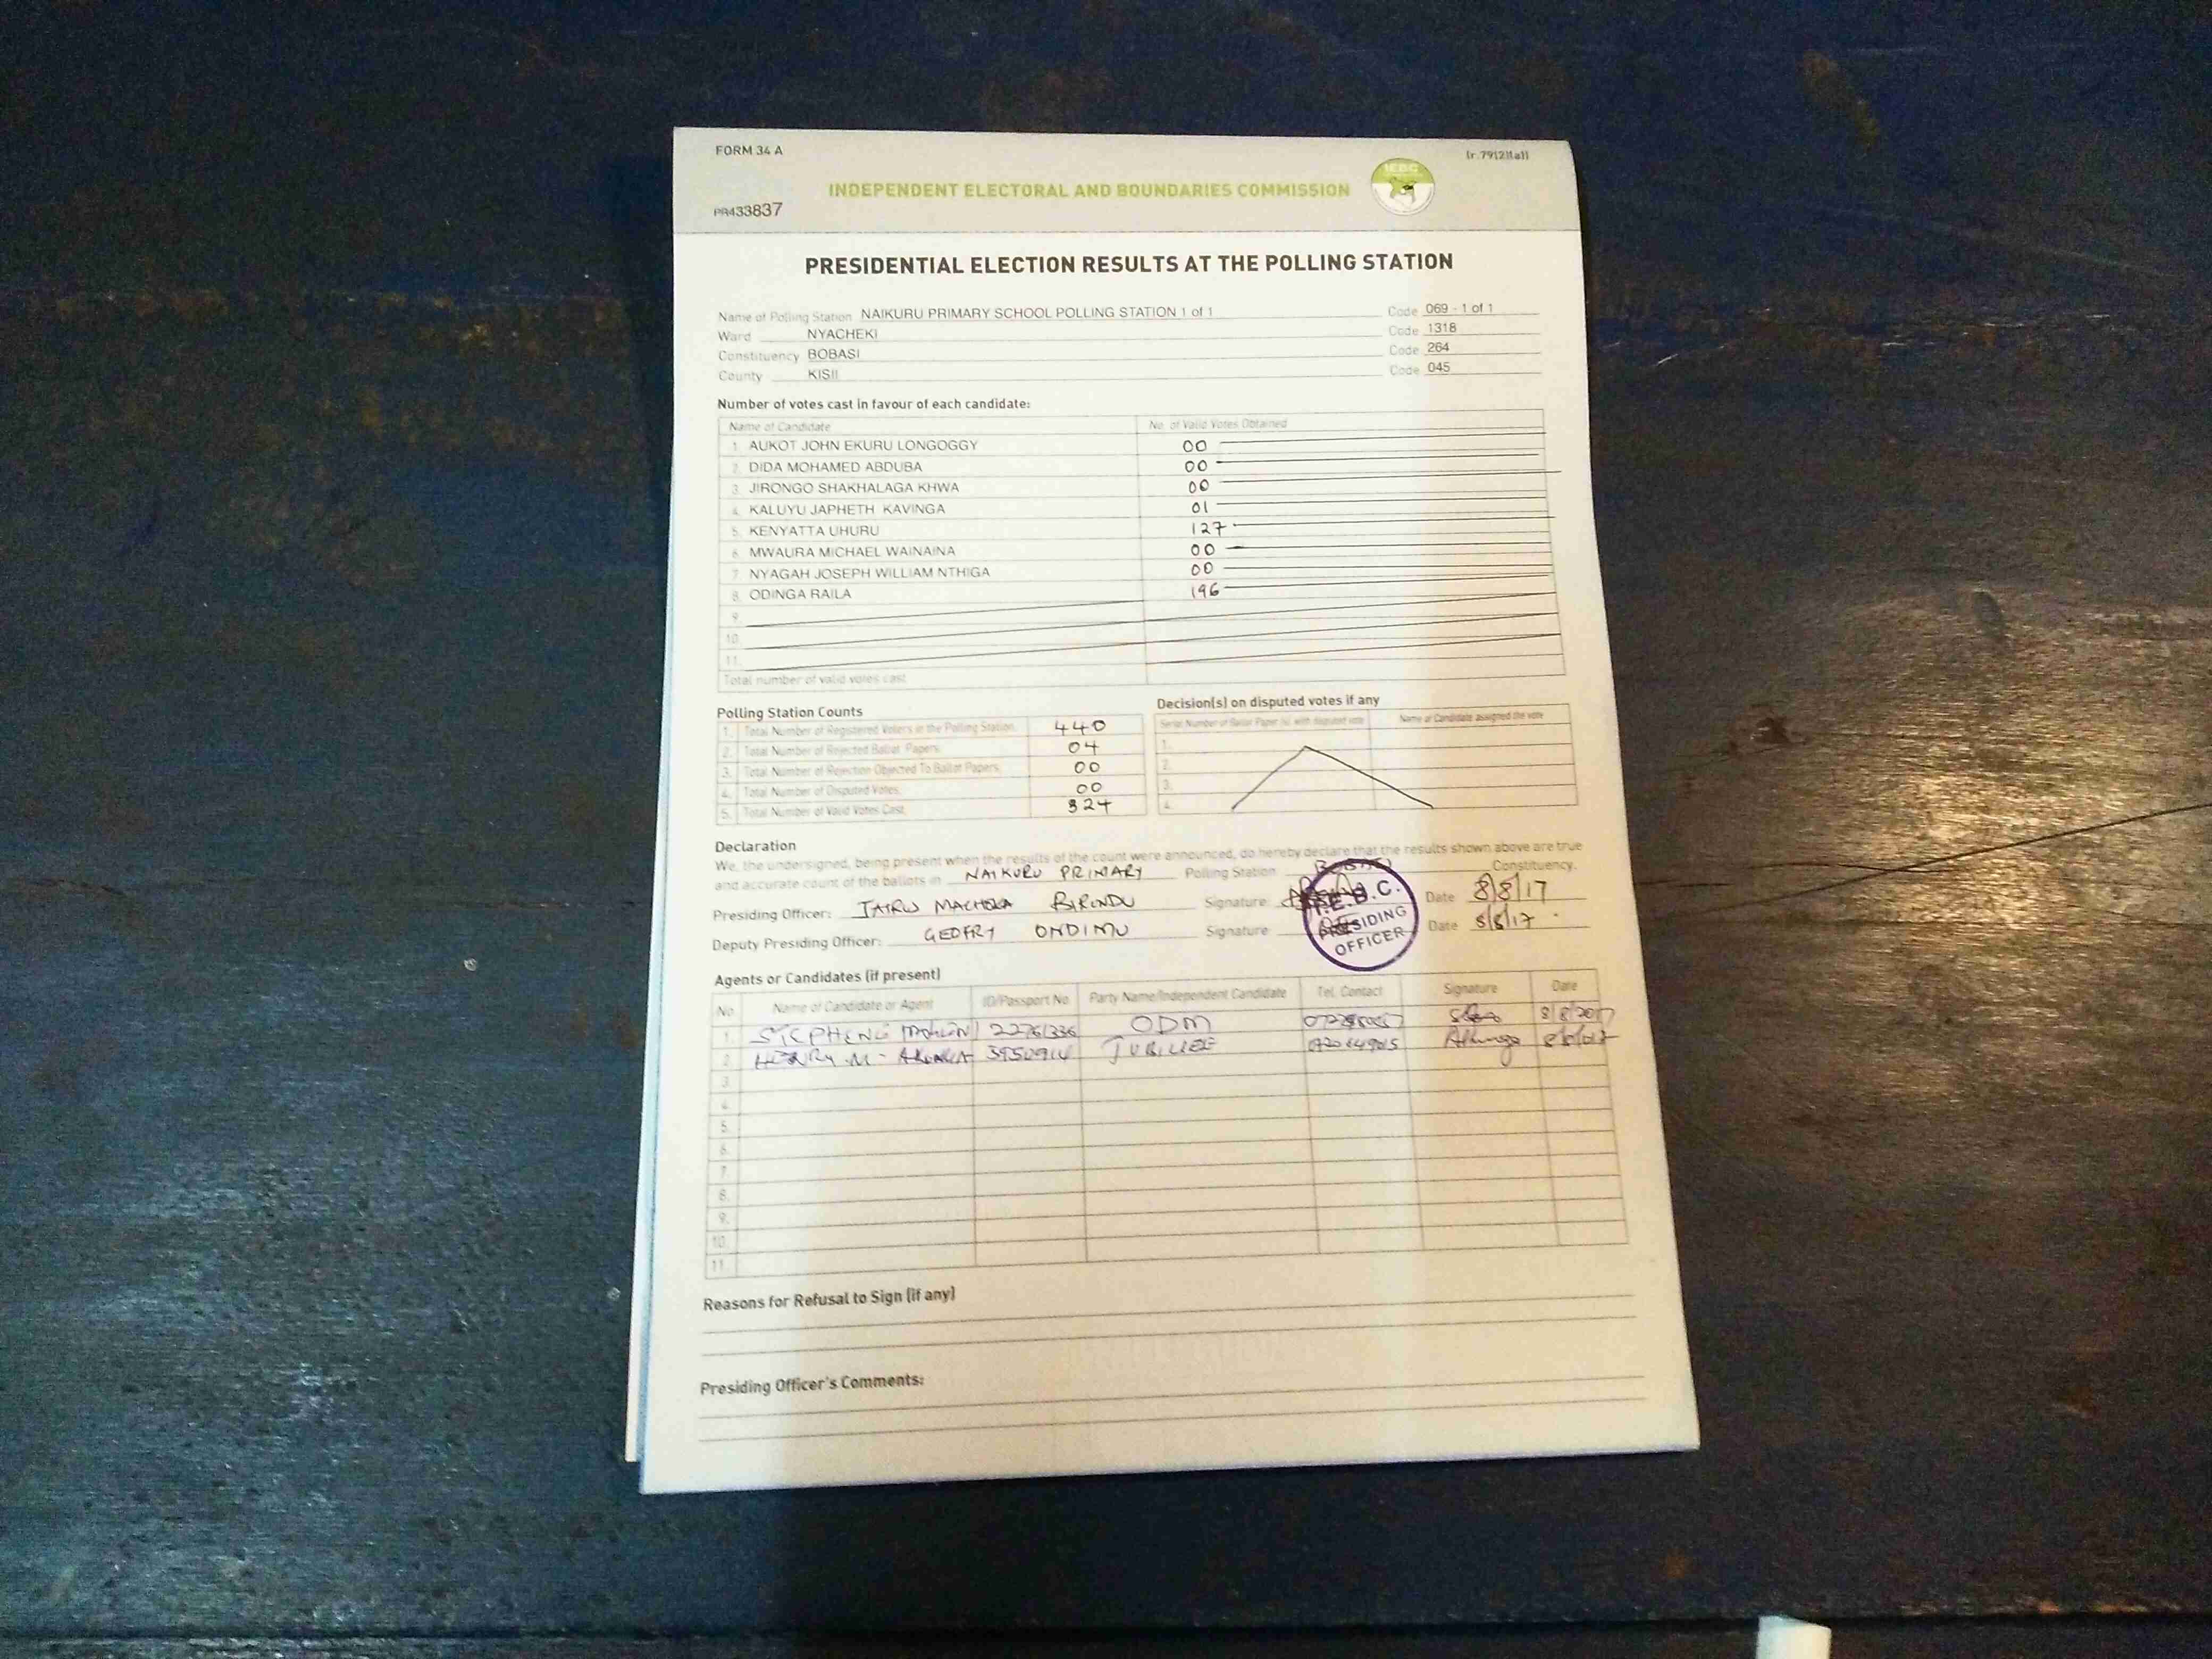 FORM 34 A
(r.79(2)(a))
IEBC
INDEPENDENT ELECTORAL AND BOUNDARIES COMMISSION
PR433837
PRESIDENTIAL ELECTION RESULTS AT THE POLLING STATION
Name of Polling Station NAIKURU PRIMARY SCHOOL POLLING STATION 1 of 1 Code 069 - 1 of 1
Ward NYACHEKI Code 1318
Constituency BOBASI Code 264
County KISII Code 045
Number of votes cast in favour of each candidate:
Name of Candidate No. of Valid Votes Obtained
1. AUKOT JOHN EKURU LONGOGGY 00
2. DIDA MOHAMED ABDUBA 00
3. JIRONGO SHAKHALAGA KHWA 00
4. KALUYU JAPHETH KAVINGA 01
5. KENYATTA UHURU 127
6. MWAURA MICHAEL WAINAINA 00
7. NYAGAH JOSEPH WILLIAM NTHIGA 00
8. ODINGA RAILA 196
9.
10.
11.
Total number of valid votes cast
Polling Station Counts
1. Total Number of Registered Voters in the Polling Station 440
2. Total Number of Rejected Ballot Papers 04
3. Total Number of Rejection Objected To Ballot Papers 00
4. Total Number of Disputed Votes 00
5. Total Number of Valid Votes Cast 324
Decision(s) on disputed votes if any
Serial Number of Ballot Paper (s) with disputed vote Name of Candidate assigned the vote
1.
2.
3.
4.
Declaration
We, the undersigned, being present when the results of the count were announced, do hereby declare that the results shown above are true
and accurate count of the ballots in NAIKURU PRIMARY Polling Station Constituency.
Presiding Officer: MACHOKA BIRUNDU Signature: Date 8/8/17
Deputy Presiding Officer: GEOFRY ONDIMU Signature Date 8/8/17
I.E.B.C.
PRESIDING
OFFICER
Agents or Candidates (if present)
No. Name of Candidate or Agent ID/Passport No. Party Name/Independent Candidate Tel. Contact Signature Date
1. 22761336 ODM 8/8/2017
2. HENRY M. JUBILEE
3.
4.
5.
6.
7.
8.
9.
10.
11.
Reasons for Refusal to Sign (if any)
Presiding Officer's Comments: